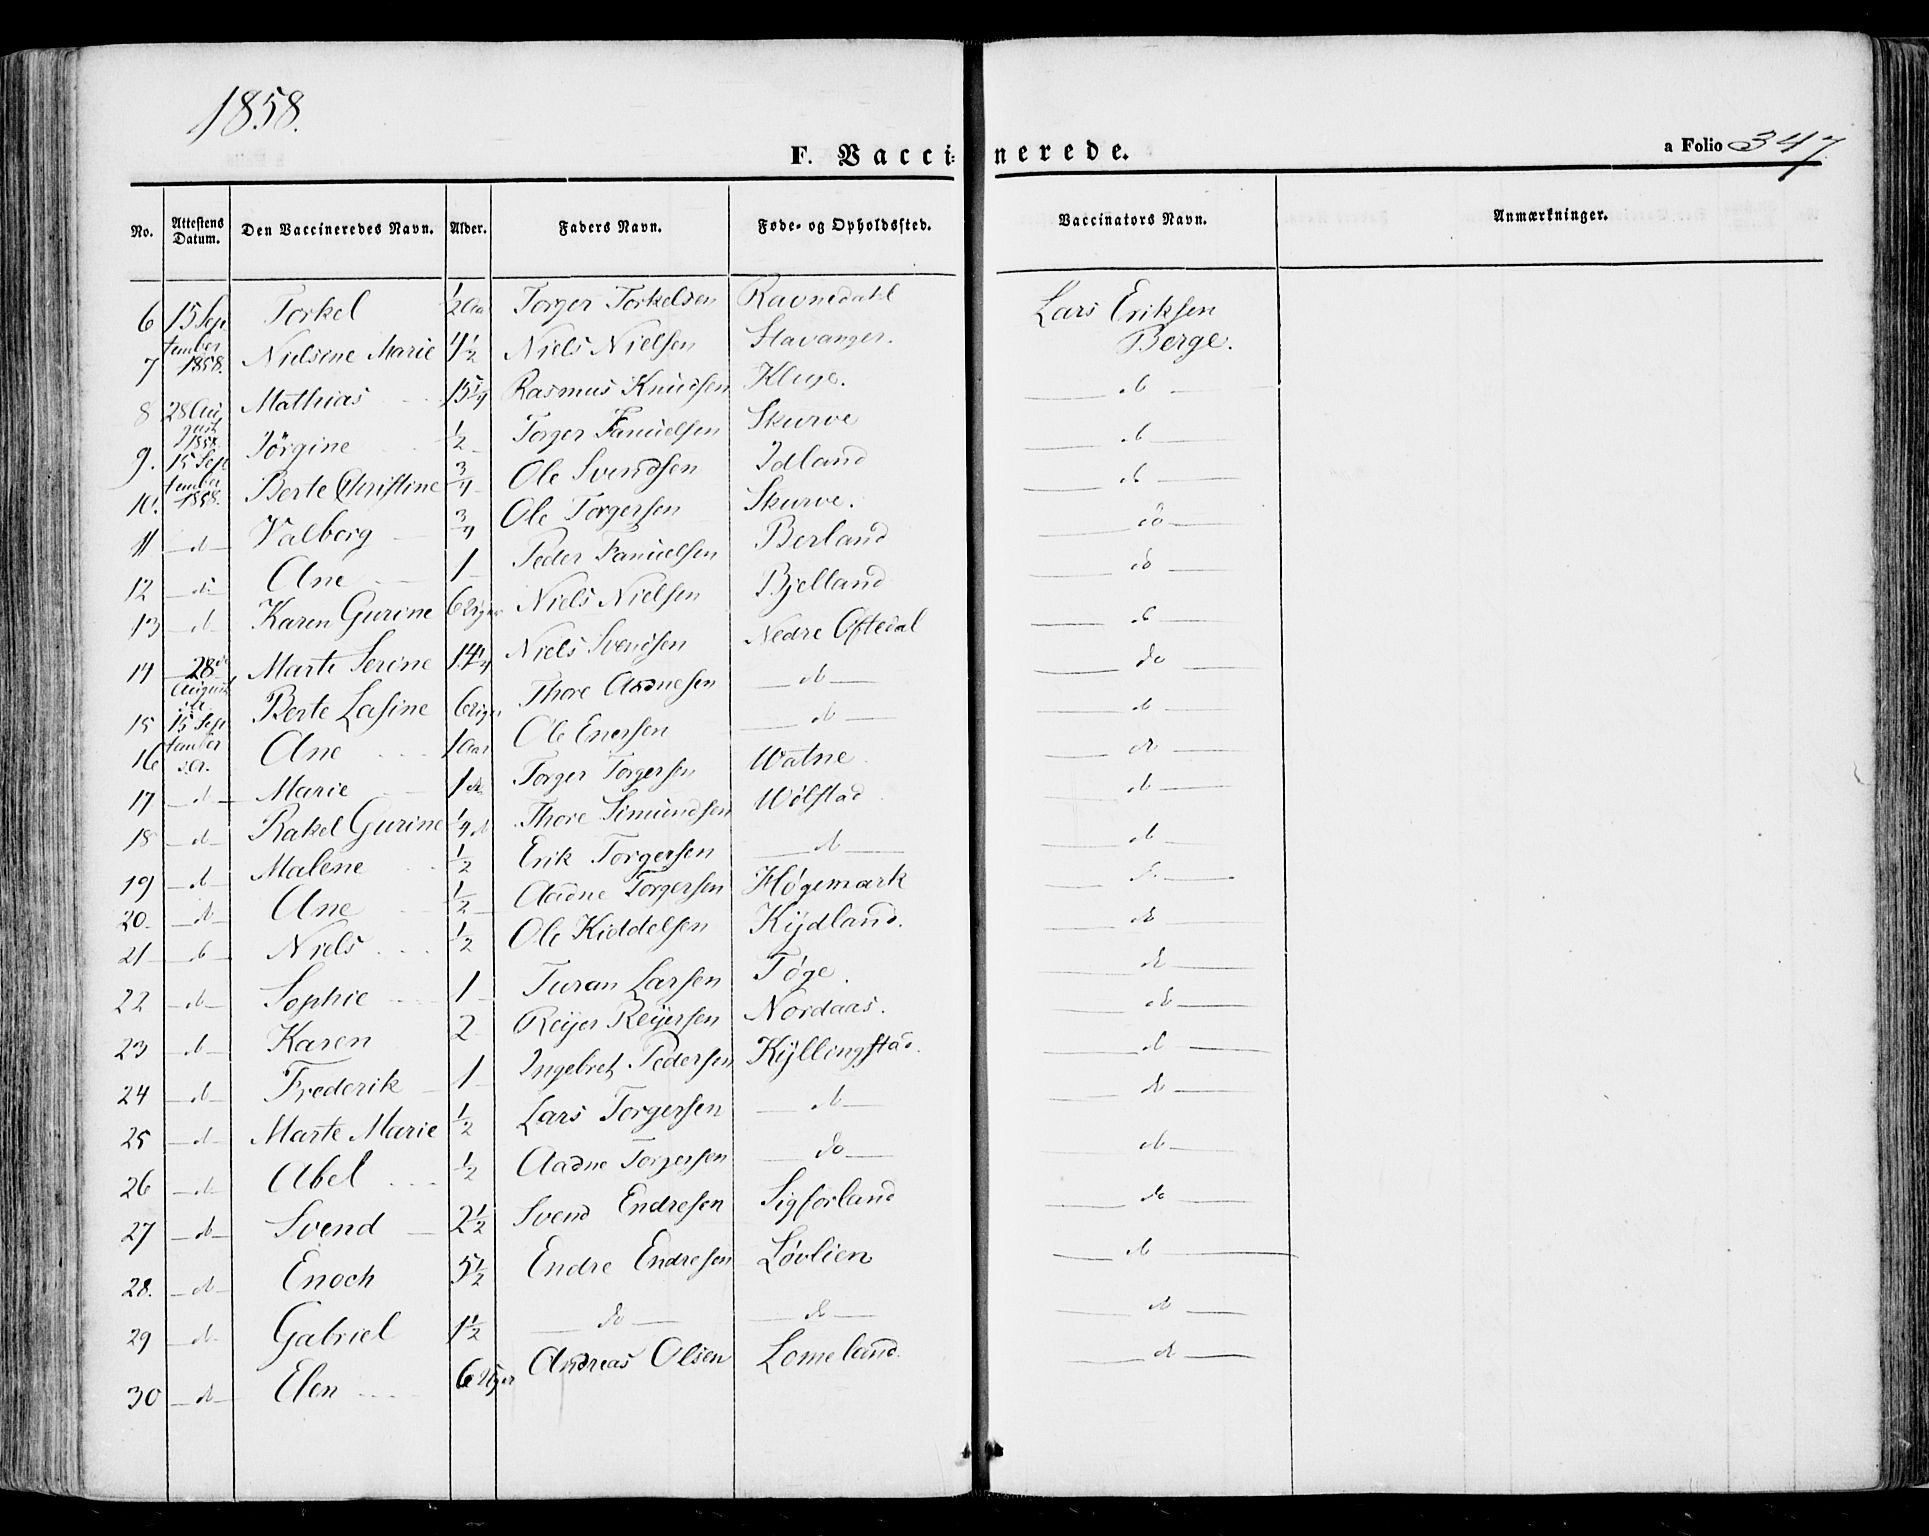 1858.
F. Vaccinerede.
a Folio 347
No. | Attestens Datum. | Den Vaccineredes Navn. | Alder. | Faders Navn. | Føde- og Opholdssted. | Vaccinators Navn. | Anmærkninger.
6 | 15 September 1858. | Torkel | ½ Aar | Torger Torkelsen | Ravnedahl | Lars Eriksen Berge.
7 | Nielsine Marie | 4½ | Niels Nielsen | Stavanger.
8 | 28 August 1858. | Mathias | 15¼ | Rasmus Knudsen | Kluge. | do
9. | 15 September 1858. | Jörgine | ½ | Torger Fanuelsen | Skurve | do
10. | Berte Christine | ¾ | Ole Svendsen | Idland | do
11 | do | Valborg | ¾ | Ole Torgersen | Skurve. | do
12 | do | Ane | 1 | Peder Fanuelsen | Berland | do
13 | do | Karen Gurine | 6 Uger | Niels Nielsen | Bjelland | do
14 | 28de August | Marte Serine | 14¼ | Niels Svendsen | Nedre Oftedal | do
15 | 15 September | Berte Lasine | 6 Uger | Thore Aadnesen | do | do
16 | Ane | 1 Aar | Ole Enersen | do | do
17 | do | Marie | 1 do | Torger Torgersen | Watne | do
18 | do | Rakel Gurine | ¼ do | Thore Simundsen | Wølstad | do
19 | do | Malene | ½ | Erik Torgersen | do | do
20. | do | Ane | ½ | Aadne Torgersen | Høgemark | do
21 | do | Niels | ½ | Ole Kiddelsen | Kydland. | do
22 | do | Sophie | 1 | Turan Larsen | Tøge. | do
23 | do | Karen | 2 | Reijer Reijersen | Nordaas. | do
24 | do | Frederik | 1 | Ingebret Pedersen | Kyllingstad. | do
25 | do | Marte Marie | ½ | Lars Torgersen | do | do
26 | do | Abel | ½ | Aadne Torgersen | do | do
27 | do | Svend | 2½ | Svend Endresen | Sigforland | do
28. | do | Enoch | 5½ | Endre Endresen | Løvlien | do
29 | do | Gabriel | 1½ | do | do | do
30 | do | Elen | 6 Uger | Andreas Olsen | Lomeland. | do